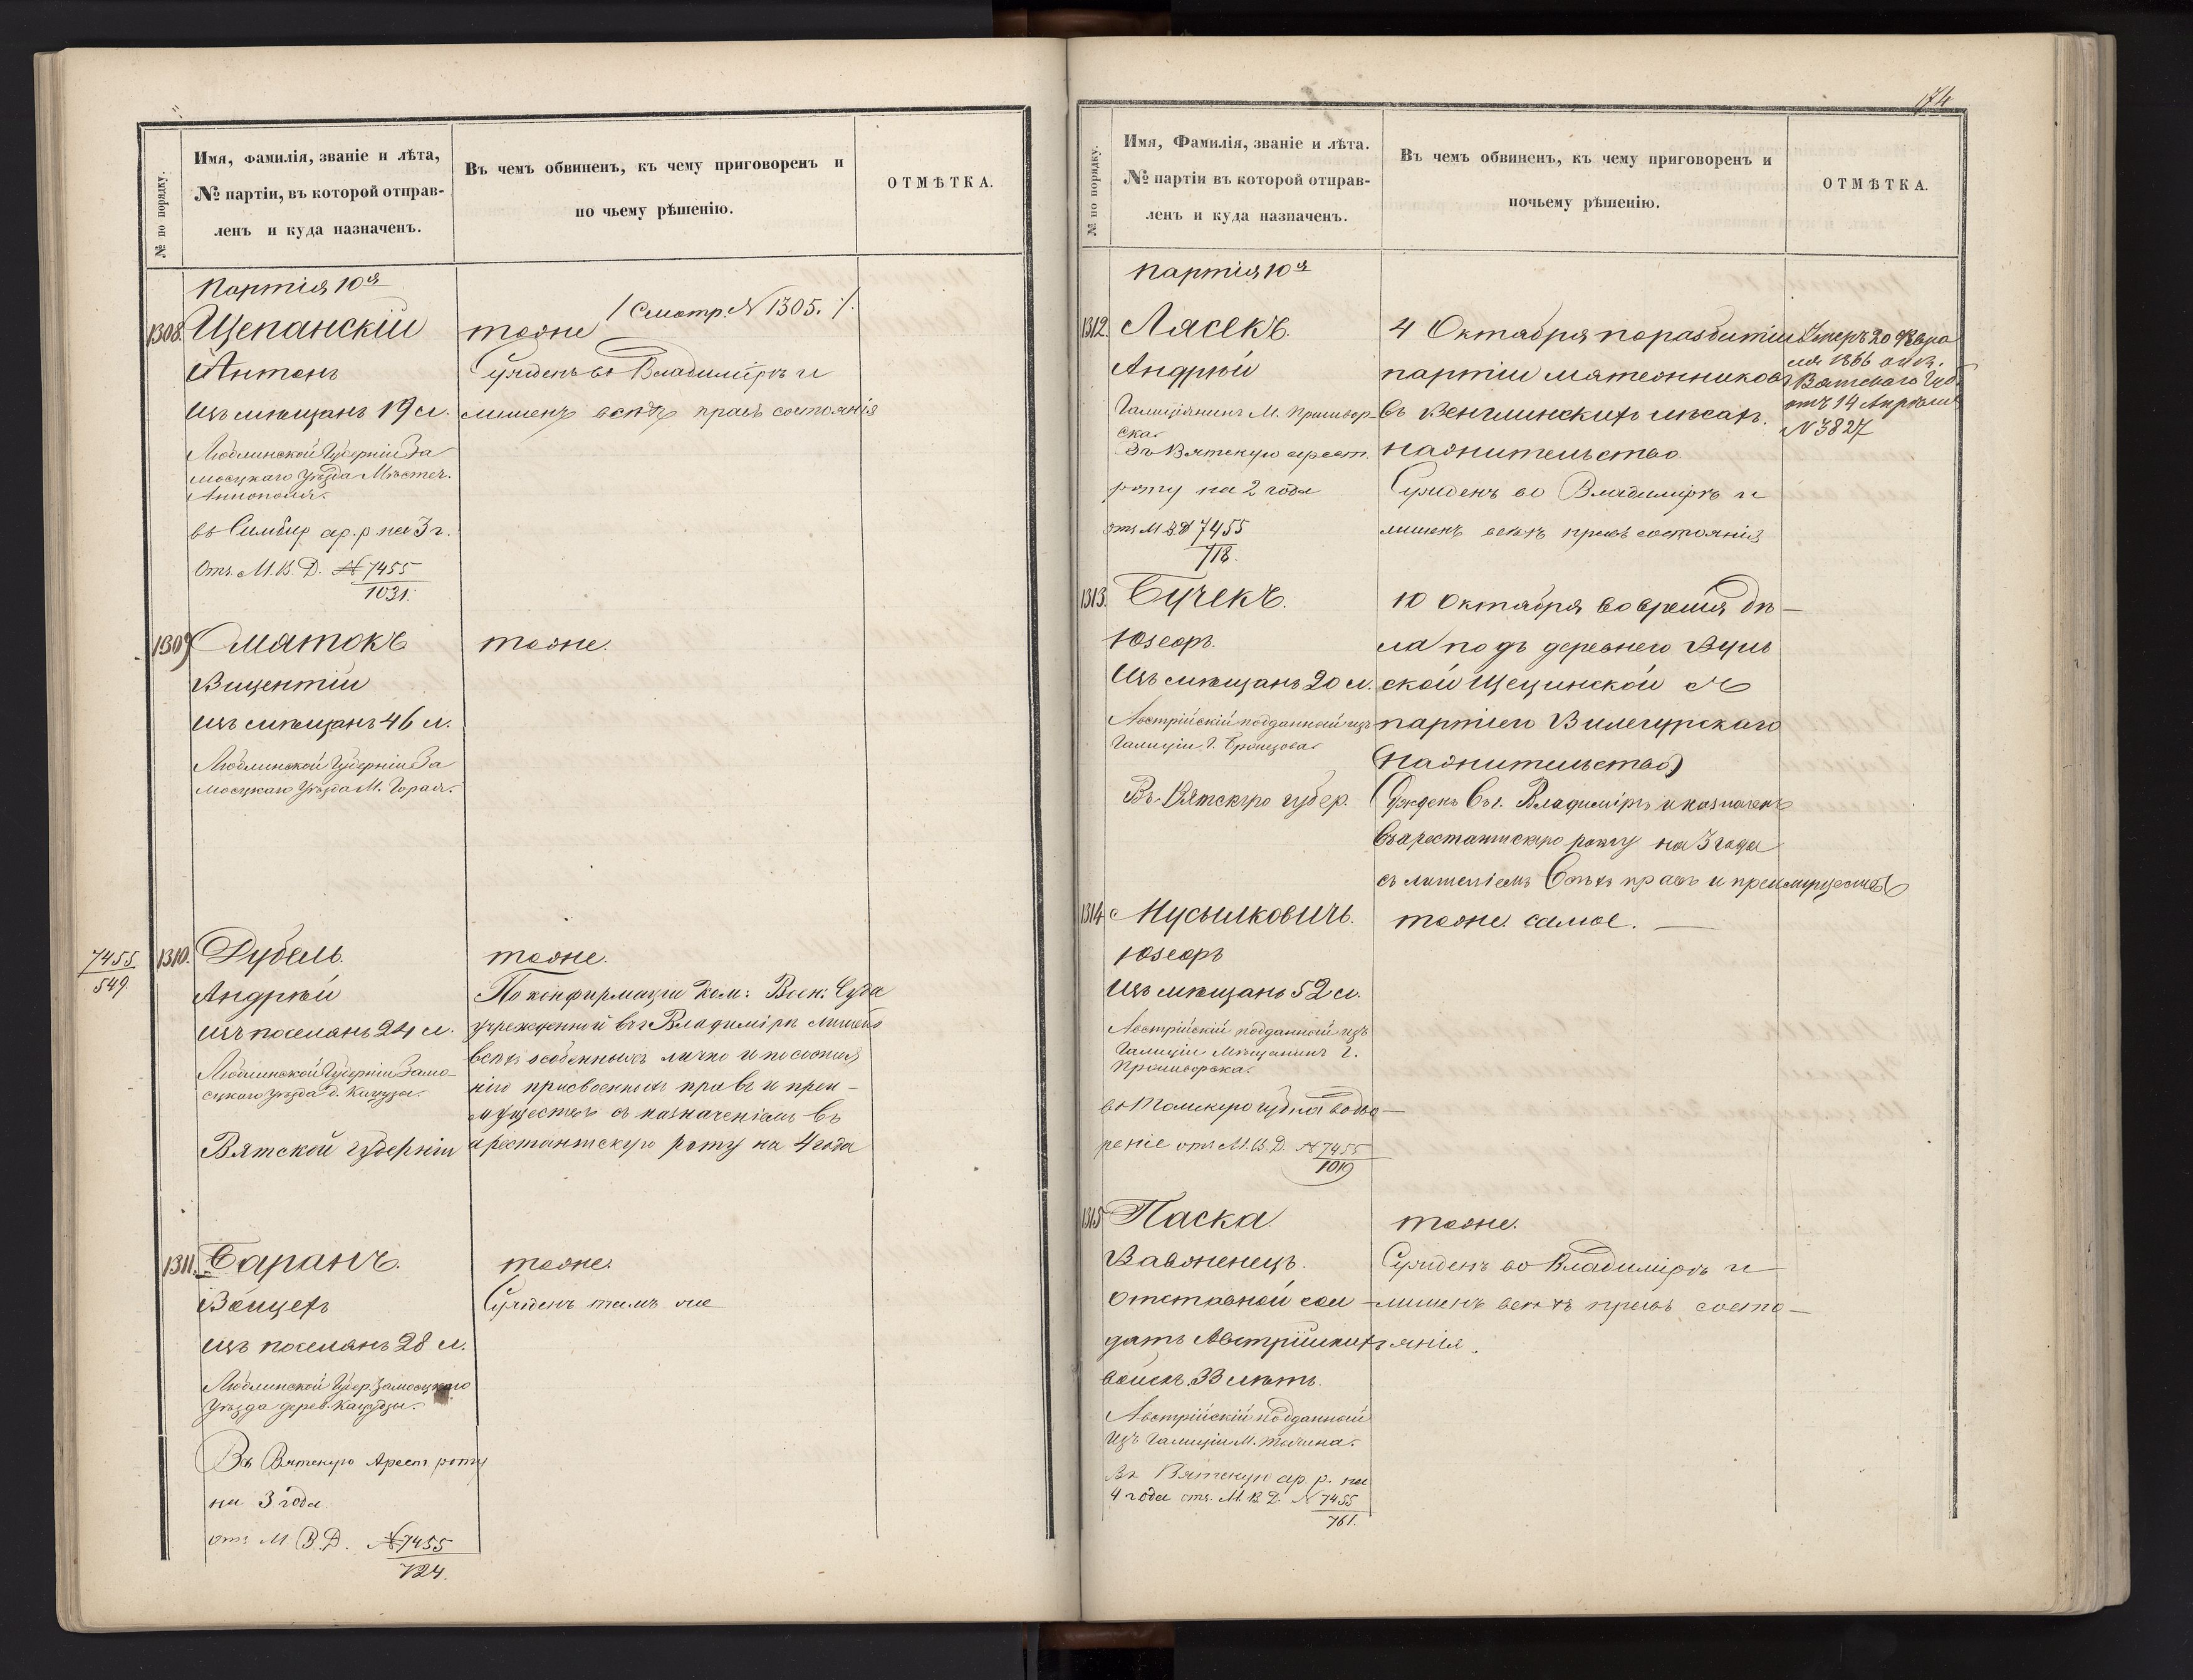 № по порядку.
Имя, фамилія, званіе и лѣта,
№ партіи, въ которой отправ-
ленъ и куда назначенъ.
Въ чемъ обвиненъ, къ чему приговоренъ и
по чьему рѣшенію.
ОТМѢТКА.
Партія 10я
/Смотр. № 1305./.
1308. Щепанскій
тоже
Антонъ
Сужденъ во Владимірѣ и
изъ мѣщанъ 19 л.
лишенъ всѣхъ правъ состоянія
Люблинской Губерніи За
мосцкаго Уѣзда Мѣстеч.
Аннополя.
въ Симбир ар. р на 3 г.
Отъ М. В. Д. № 7455
1031.
1309 Сматокъ
тоже.
Вицентій
изъ мѣщанъ 46 л.
Люблинской Губерніи За
мосцкаго Уѣзда М. Горая.
7455
549.
1310. Дубель.
тоже.
Андрѣй
По конфирмаціи Ком: Воен: Суда
изъ поселянъ 24 л.
учрежденной въ г Владимірѣ лишенъ
всѣхъ особенныхъ лично и по состоя
Люблинской Губерніи Замо-
нію присвоенныхъ правъ и преи-
сцкаго уѣзда д.
муществъ съ назначеніемъ въ
Вятской губерніи
арестантскую роту на 4 года
1311. Баранъ.
тоже.
Войцехъ
Сужденъ тамъ же
изъ поселянъ 28 л.
Люблинской Губер. Замосцкаго
Уѣзда дерев.
Въ Вятскую Арест. роту
на 3 года
отъ М. В. Д. № 7455
724.
174
№ по порядку.
Имя, Фамилія, званіе и лѣта.
№ партіи въ которой отправ-
ленъ и куда назначенъ.
Въ чемъ обвиненъ, къ чему приговоренъ и
почьему рѣшенію.
ОТМѢТКА.
Партія 10я
1312. Лясекъ.
4 Октября по разбитіи
Умеръ 20 Февра
ля 1866
Андрѣй
партіи мятежниковъ
Вятскаго Губ.
отъ 14 Апрѣля
№ 3827
Галиціянинъ М.
въ Венглинскихъ лѣсахъ.
ска.
Въ Вятскую арест.
на жительство
роту на 2 года
Сужденъ во Владимірѣ и
отъ М В Д 7455
718.
лишенъ всѣхъ правъ состоянія
1313. Бучекъ.
10 Октября во время дѣ-
Юзефъ.
ла подъ деревнею
Изъ мѣщанъ 20 л.
ской Щецинской съ
Австрійскій подданный изъ
Галиціи Г.
партіею
На жительство
Въ Вятскую губер.
Сужденъ въ г. Владимірѣ и назначенъ
въ арестантскую роту на 3 года
съ лишеніемъ всѣхъ правъ и преимуществъ
1314 Мусылковичъ.
тоже самое.
Юзефъ
Изъ мѣщанъ 52 л.
Австрійскій подданный изъ
Галиціи Мѣщанинъ г.
въ Томскую губ на водво-
реніе отъ М. В. Д. № 7455
1019
1315 Паска
тоже.
Вавженецъ.
Сужденъ во Владимірѣ и
Отставной сол-
лишенъ всѣхъ правъ состо-
датъ Австрійскихъ
янія.
войскъ. 33 лѣтъ.
Австрійскій подданный
изъ Галиціи М.
Въ Вятскую ар. р. на
4 года отъ М. В. Д. № 7455
761.